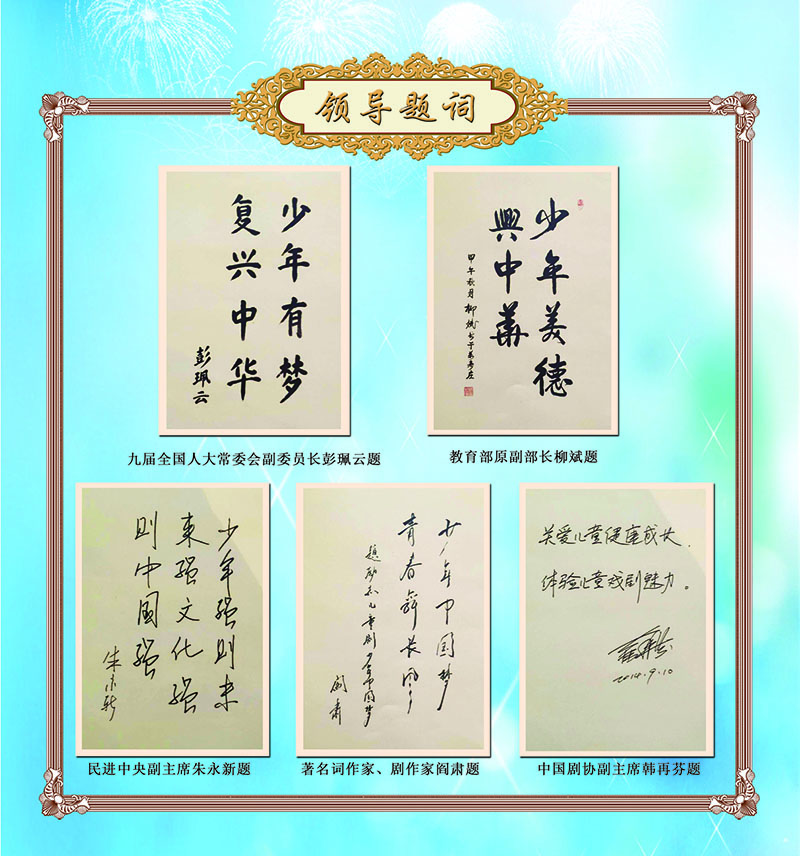 领导题词
少年有梦
复兴中华
彭珮云
九届全国人大常委会副委员长彭珮云题
少年美德
興中華
甲午秋月 柳斌书于
教育部原副部长柳斌题
少年强则未
来强文化强
则中国强
朱永新
民进中央副主席朱永新题
少年中国梦
青春舞长风
题励志儿童剧少年中国梦
阎肃
著名词作家、剧作家阎肃题
关爱儿童健康成长，
体验儿童戏剧魅力。
2014.9.10
中国剧协副主席韩再芬题